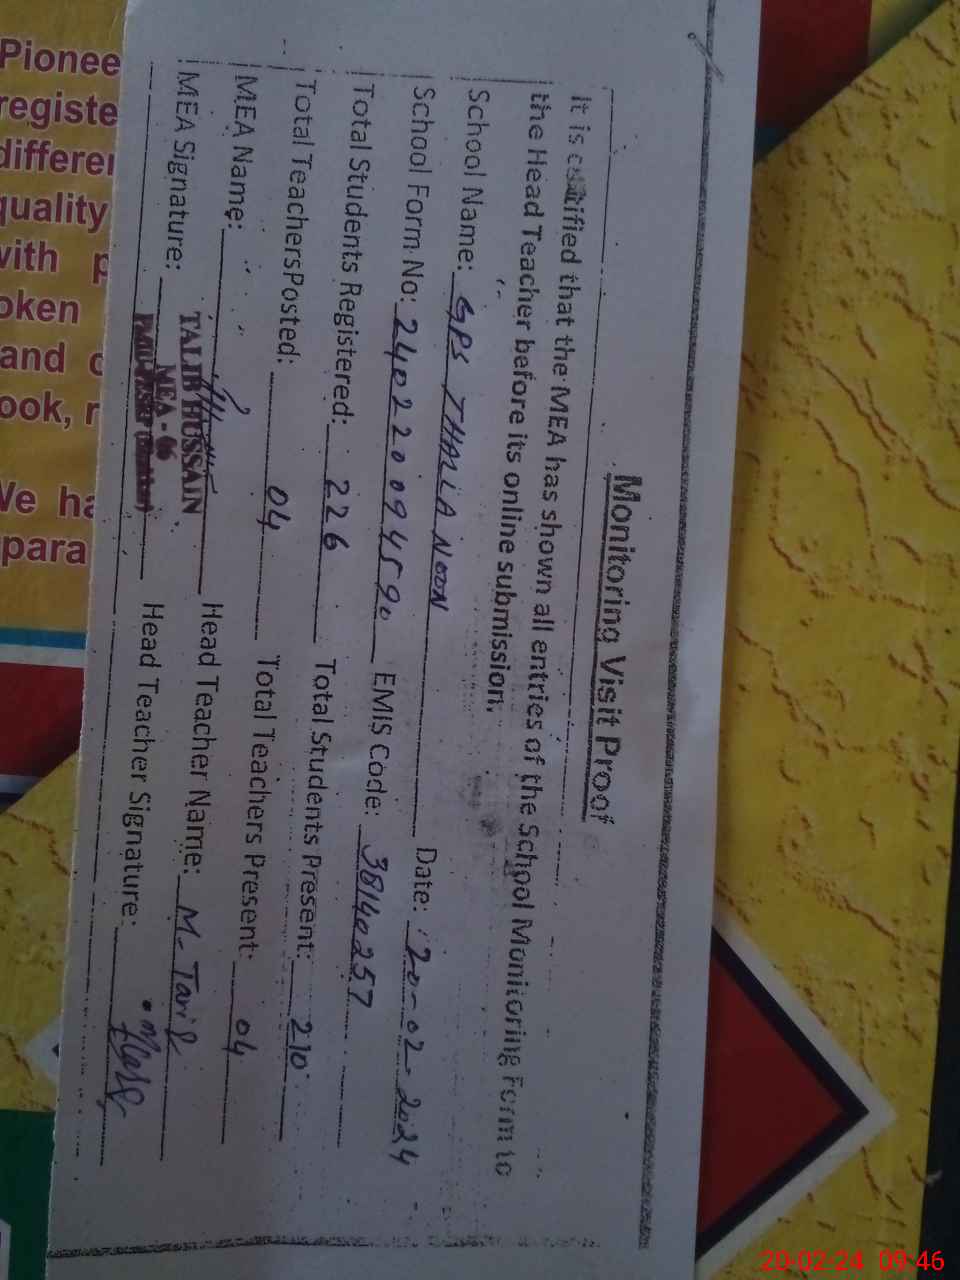 Monitoring Visit Proof
It is certified that the MEA has shown all entries of the School Monitoring Form to
the Head Teacher before its online submission.
School Name: GPS THALIA NOON Date: 20-02-2024
School Form No: 240220094590 EMIS Code: 38140257
Total Students Registered: 226 Total Students Present: 210
Total Teachers Posted: 04 Total Teachers Present: 04
MEA Name: TALIB HUSSAIN Head Teacher Name: M. Tariq
MEA Signature: MEA - 06 Head Teacher Signature:
Pionee
registe
differen
quality
with p
oken
and c
ook, r
We ha
para
20-02-24 09:46